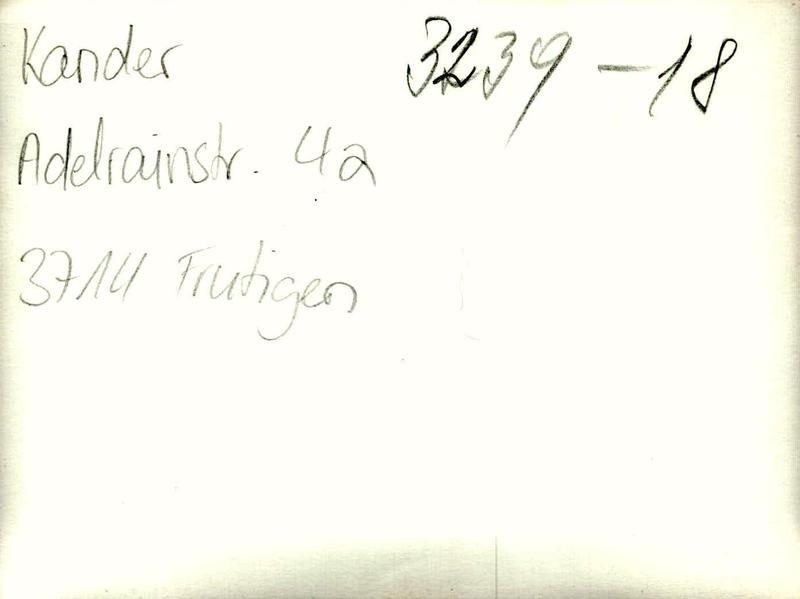 Kander 3239-18
Adelrainstr. 4a
3714 Frutigen